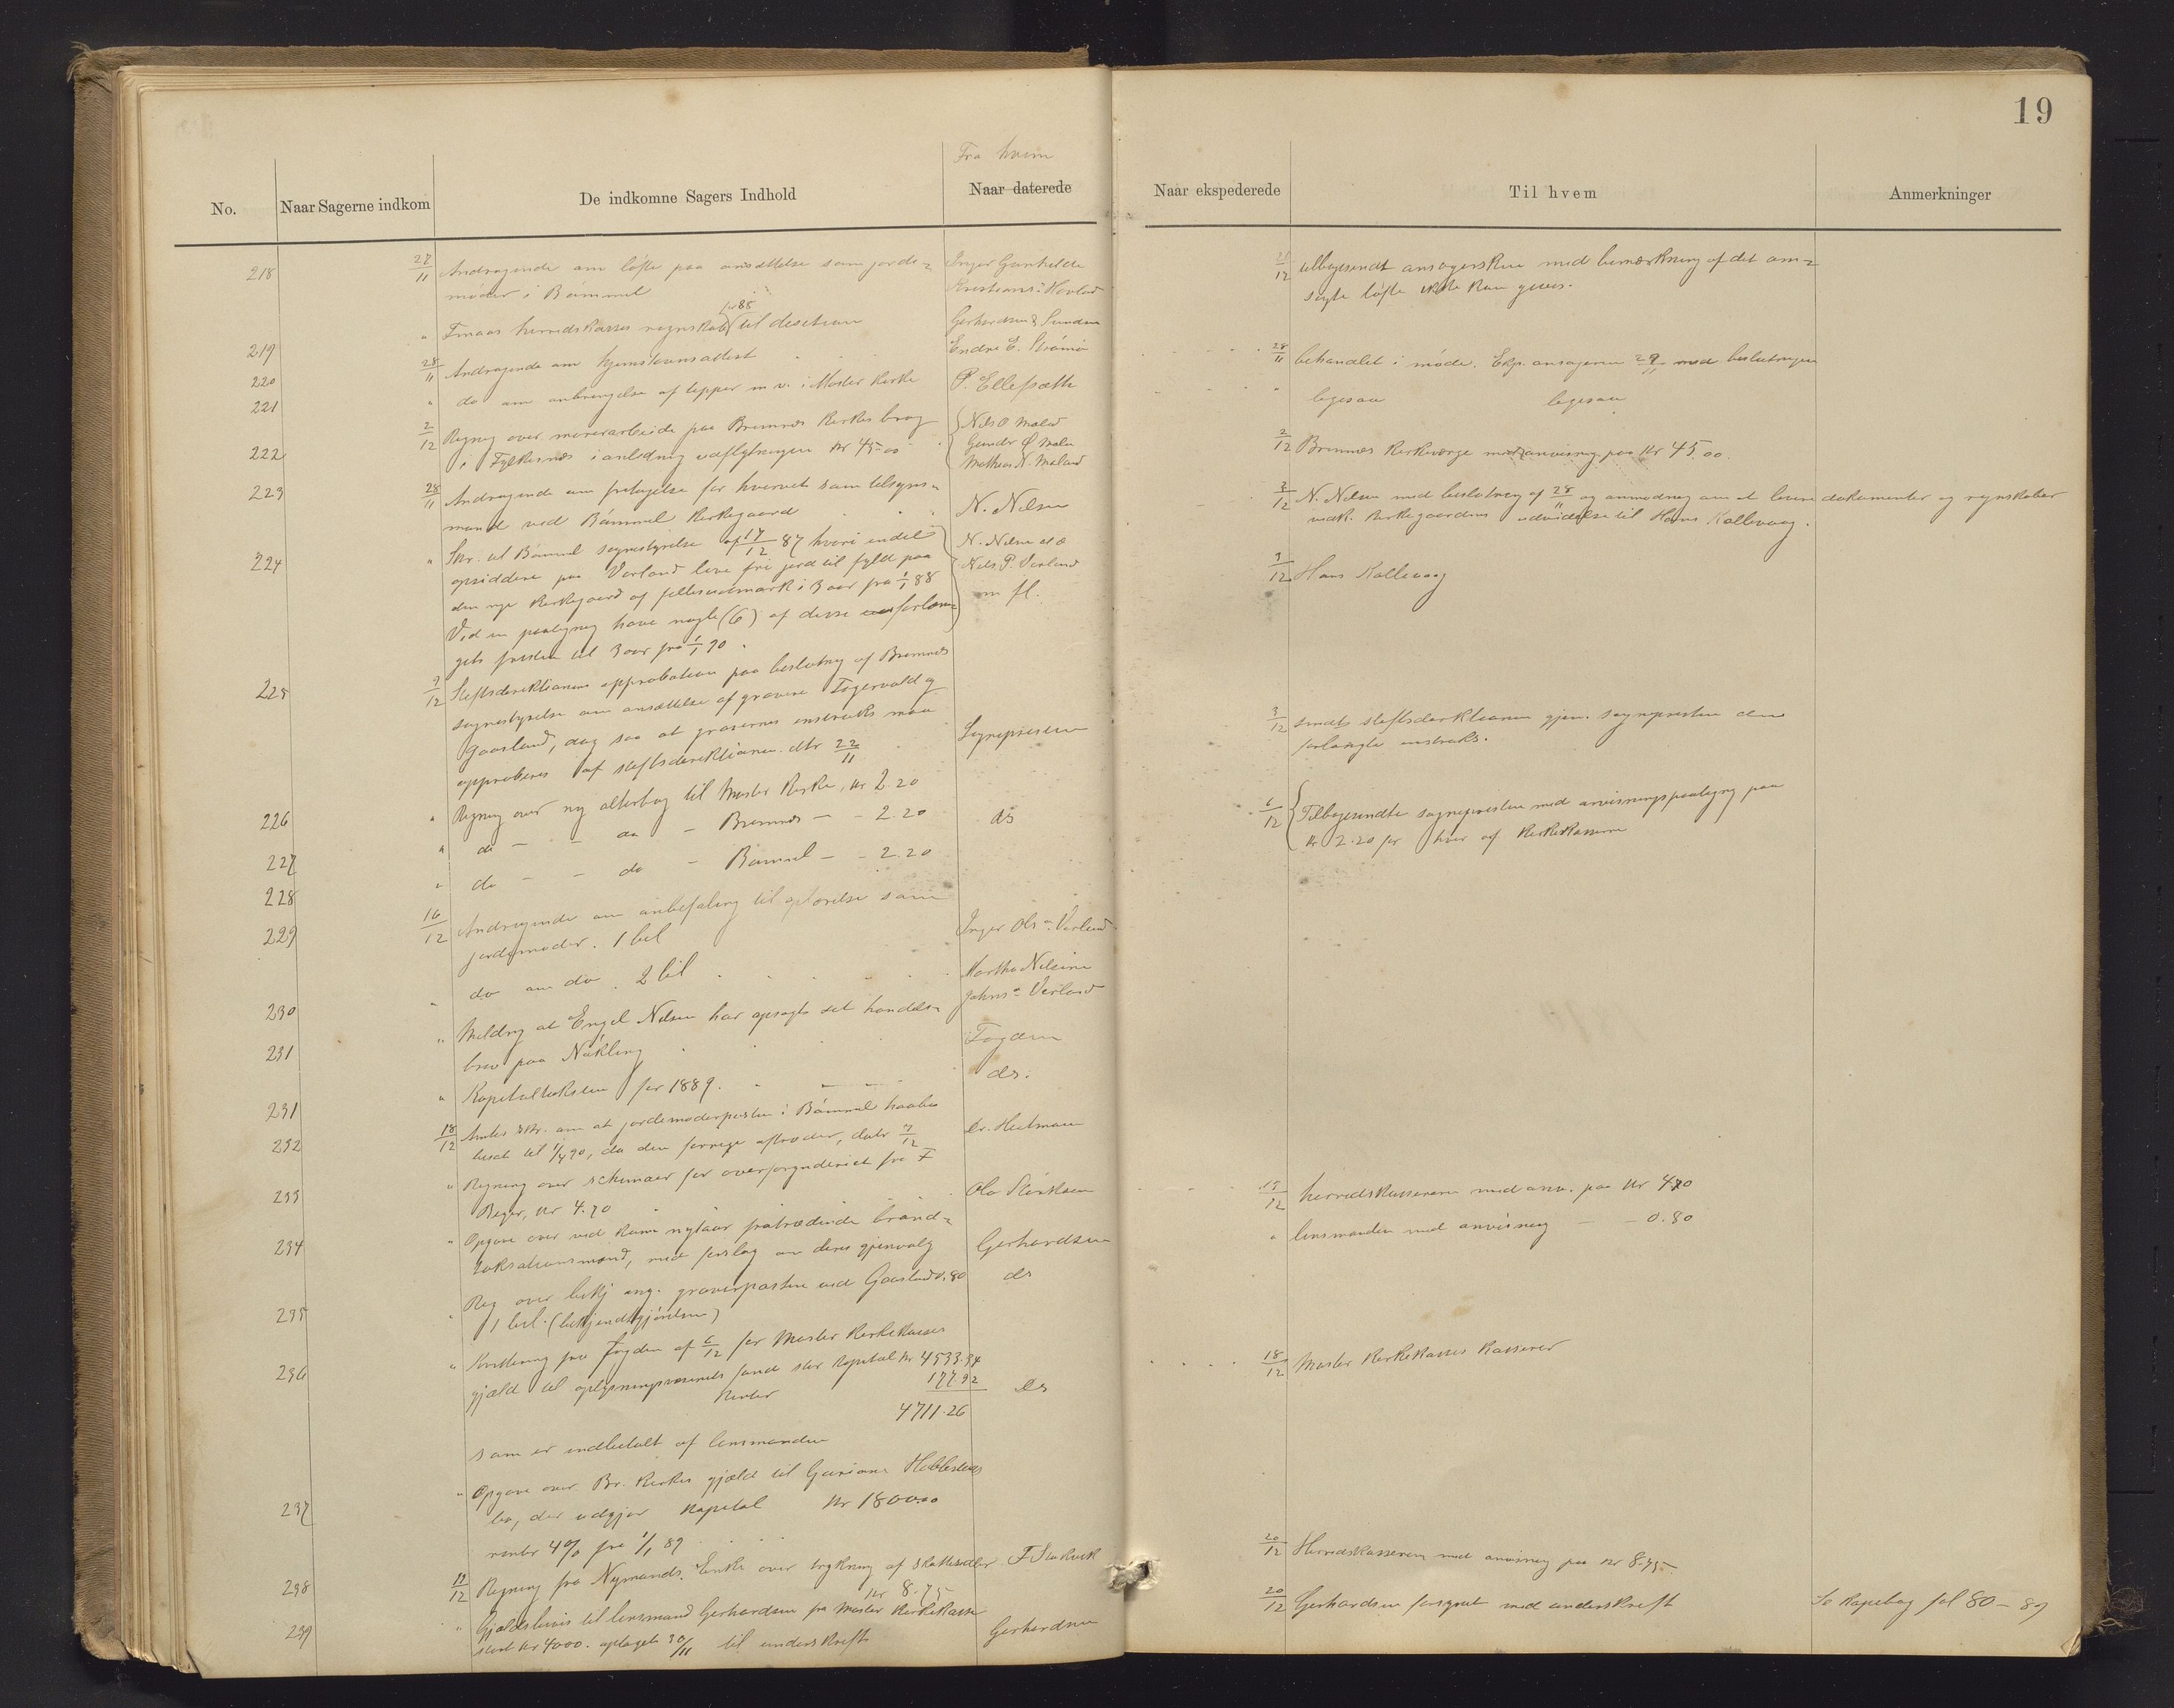 19
Fra hvem
No.
Naar Sagerne indkom
De indkomne Sagers Indhold
Naar daterede
Naar ekspederede
Til hvem
Anmerkninger
218 27/11 Andragende om löfte paa ansættelse som jorde-
moder i Bömmel
Inger Gunhilde
Kristians
12 tilbagesendt ansøgersken med bemærkning af det om-
søgte löfte ikke kan gives.
219 " Finaas herredskasses regnskab for 88 til desition
Gerhardsen &
220 28/11 Andragende om hjemstavnsattest
Endre E. Strömö
28/11 behandlet i møde. Exp. ansøgeren 29/11 med beslutningen
221 " do om anbringelse af tepper m.v. i Moster kirke
P. Ellefsæth
" ligesaa ligesaa
222 2/12 Regning over murerarbeide paa Bremnes kirkes brug
i i anledning udflytningen kr 45-00
Nils O Maland
Gunder
Mathias N. Maland
2/12 Bremnes kirkeværge med anvisning paa kr 45.00.
223 28/11 Andragende om fritagelse for hvervet som tilsyns-
mand ved Bömmel kirkegaard
N. Nilsen
3/12 N. Nilsen med beslutning af 28/11 og anmodning om at levere dokumenter og regnskaber
vedk. kirkegaardens udvidelse til Hans Kallevaag.
224 " Skr. til Bömmel sognestyrelse af 17/12 87 hvori endel
opsiddere paa Vorland love fri jord til fyld paa
den nye kirkegaard af fellesudmark i 3 aar fra 1/1 88
Ved en paategning have nogle (6) af disse forlæn-
gets fristen til 3 aar fra 1/1 90.
N. Nilsen
Nils P. Vorland
m fl.
3/12 Hans Kallevaag
225 9/12 Stiftsdirektionens approbation paa beslutning af Bremnes
sognestyrelse om ansættelse af gravere Fagervold og
Gaasland, dog saa at gravernes instruks maa
approberes af stiftsdirektionen. dtr 22/11
Sognepresten
3/12 sendt stiftsdirektionen gjen. sognepresten den
forlangte instruks.
226 " Regning over ny alterbog til Moster kirke, kr 2.20
do
6/12 Tilbagesendte sognepresten med anvisningspaategng paa
kr 2.20 for hver af kirkekasserne
227 " do - - do - Bremnes - - 2.20
228 " do - - do - Bömmel - - 2.20
229 16/12 Andragende om anbefaling til oplærelse som
jordemoder. 1 bil
Inger Olsn. Vorland
230 " do om do. 2 bil
Martha Nilsine
Johnsn Vorland
231 " Melding at Engel Nilsen har opsagt sit handels-
brev paa Nökling
Fogden
231 " Kapitaltaksten for 1889.
do.
232 18/12 Amtes skr. om at jordemoderposten i Bömmel haabes
besat til 1/4 90, da den forrige aftræder, datr 7/12
Dr. Heitman
233 " Regning over schemaer for overforgnderiet fra F
Beyer, kr 4.70
Ole
19/12 herredskassereren med anv. paa kr 4.70
234 " Opgave over ved kom nytaar fratrædende brand-
taksationsmænd, med forslag om deres gjenvalg
Gerhardsen
" lensmanden med anvisning - - 0.80
235 " Reg over bekj ang. graverposten ved Gaasland 0.80
1 bil. (bekjendtgjörelsen)
do
236 " Kvittering fra fogden af 6/12 for Moster kirkekasses
gjæld til oplysningsvæsenets fond stor kapital kr 4533.34
Renter 177.92
4711.26
som er indbetalt af lensmanden
do
18/12 Moster kirkekasses kasserer
237 " Opgave over Br. kirkes gjæld til
bo, der udgjør kapital kr 1800.00
renter 4% fra 1/1 89
238 19/12 Regning fra Nymands Enke over trykning af skattesedler
kr 8.75
20/12 Herredskassereren med anvisning paa kr 8.75-
239 " Gjældsbevis til lensmand Gerhardsen fra Moster kirkekasse
stort kr 4000. optaget 30/11 til underskrift
Gerhardsen
20/12 Gerhardsen forsynet med underskrift
Se kopibog fol 80 - 89